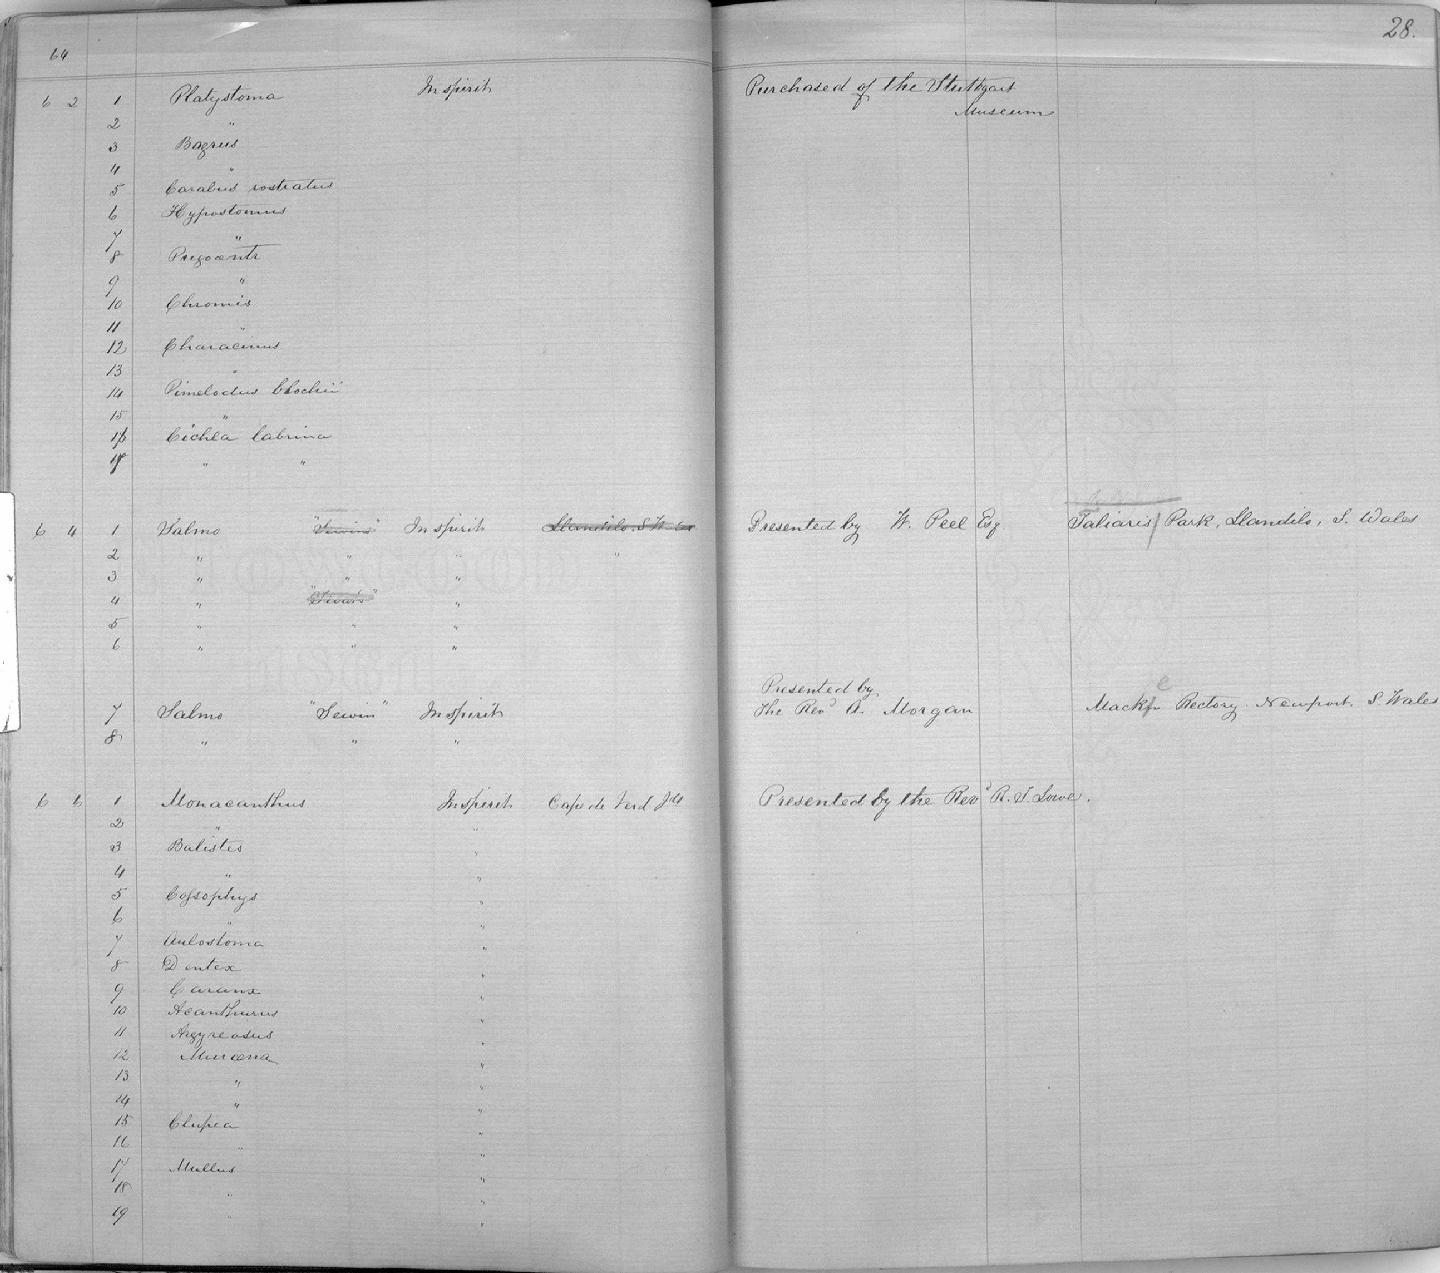 28.
64
6 2 1 Platystoma In spirit Purchased of the Stuttgart
Museum
2 "
3 Bagrus
4 "
5 Carabus rostratus
6 Hypostomus
7 "
8
9 "
10 Chromis
11 "
12 Characinus
13 "
14 Pimelodus blochii
15 "
16 Cichla labrina
17 " "
6 4 1 Salmo "Sewin" In spirit Llandilo, S. Wales Presented by W. Peel Esq Taliaris Park, Llandilo, S. Wales
2 " " " "
3 " " "
4 " "Sewin" "
5 " " "
6 " " "
Presented by
7 Salmo "Sewin" In spirit The Revd A. Morgan Macken Rectory. Newport. S. Wales
8 " " "
6 6 1 Monacanthus In spirit Cape de Verd Ids Presented by the Revd R. T. Lowe.
2 " "
3 Balistes "
4 " "
5 Cossophys "
6 " "
7 Aulostoma "
8 Dentex "
9 Caranx "
10 Acanthurus "
11 Argyreosus "
12 Muraena "
13 " "
14 " "
15 Clupea "
16 " "
17 Mullus "
18 " "
19 " "